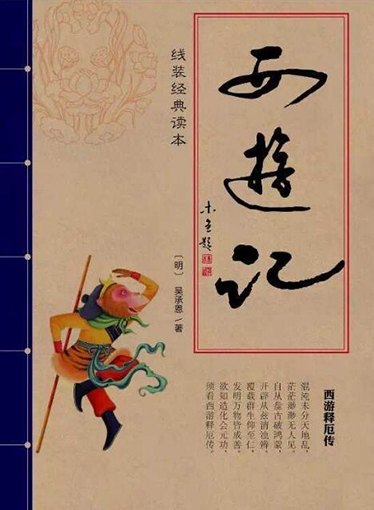 西遊记
线装经典读本
〔明〕吴承恩/著
西游释厄传
混沌未分天地乱，
茫茫渺渺无人见。
自从盘古破鸿蒙，
开辟从兹清浊辨。
覆载群生仰至仁，
发明万物皆成善。
欲知造化会元功，
须看西游释厄传。